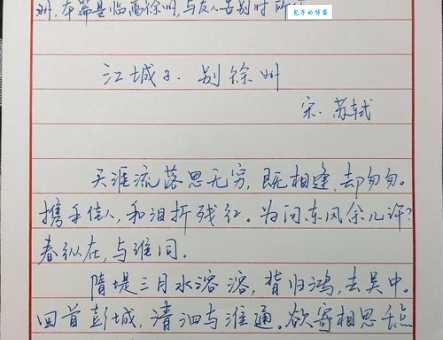 州,本篇是临离徐州,与友人告别时所
江城子·别徐州
宋·苏轼
天涯流落思无穷,既相逢,却匆匆。
携手佳人,和泪折残红。为问东风余几许?
春纵在,与谁同。
隋堤三月水溶溶,背归鸿,去吴中。
回首彭城,清泗与淮通。欲寄相思千点